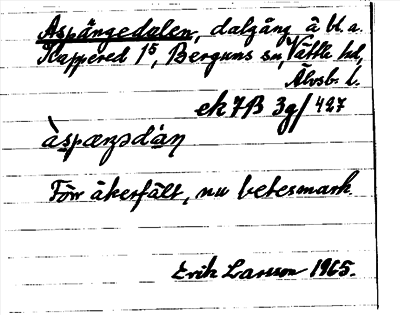 Aspängedalen, dalgång å bl. a.
Kappered 1⁵, Bergums sn, Vättle hd,
Älvsb. l.
ek 7B 3g/427
Förr åkerfält, nu betesmark
Erik Larsson 1965.